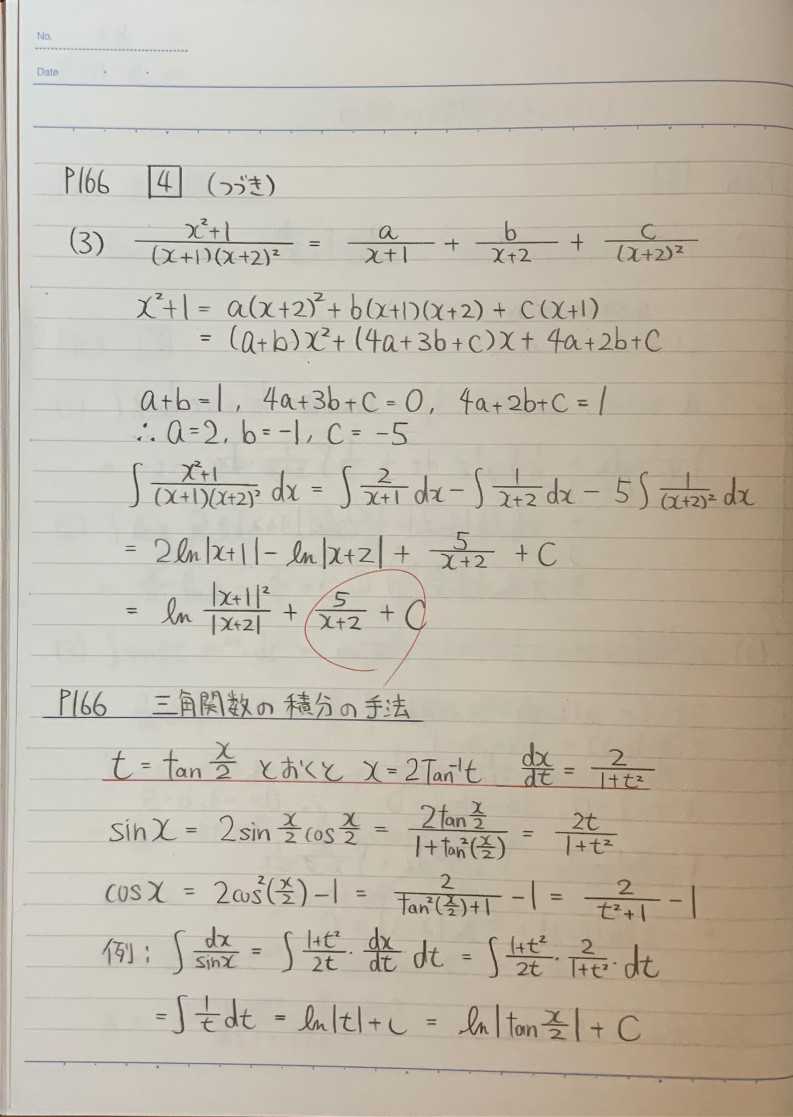 No.
Date
P166 4 (つづき)
(3) (x²+1)/((x+1)(x+2)²) = a/(x+1) + b/(x+2) + c/(x+2)²
x²+1 = a(x+2)² + b(x+1)(x+2) + c(x+1)
= (a+b)x² + (4a+3b+c)x + 4a+2b+c
a+b=1, 4a+3b+c=0, 4a+2b+c=1
∴ a=2, b=-1, c=-5
∫ (x²+1)/((x+1)(x+2)²) dx = ∫ 2/(x+1) dx - ∫ 1/(x+2) dx - 5∫ 1/(x+2)² dx
= 2ln|x+1| - ln|x+2| + 5/(x+2) + C
= ln |x+1|²/|x+2| + 5/(x+2) + C
P166 三角関数の積分の手法
t = tan x/2 とおくと x = 2Tan⁻¹t dx/dt = 2/(1+t²)
sin x = 2sin x/2 cos x/2 = 2tan x/2 / (1+tan²(x/2)) = 2t/(1+t²)
cos x = 2cos²(x/2) - 1 = 2/(tan²(x/2)+1) - 1 = 2/(t²+1) - 1
例: ∫ dx/sin x = ∫ (1+t²)/2t · dx/dt dt = ∫ (1+t²)/2t · 2/(1+t²) · dt
= ∫ 1/t dt = ln|t| + C = ln|tan x/2| + C